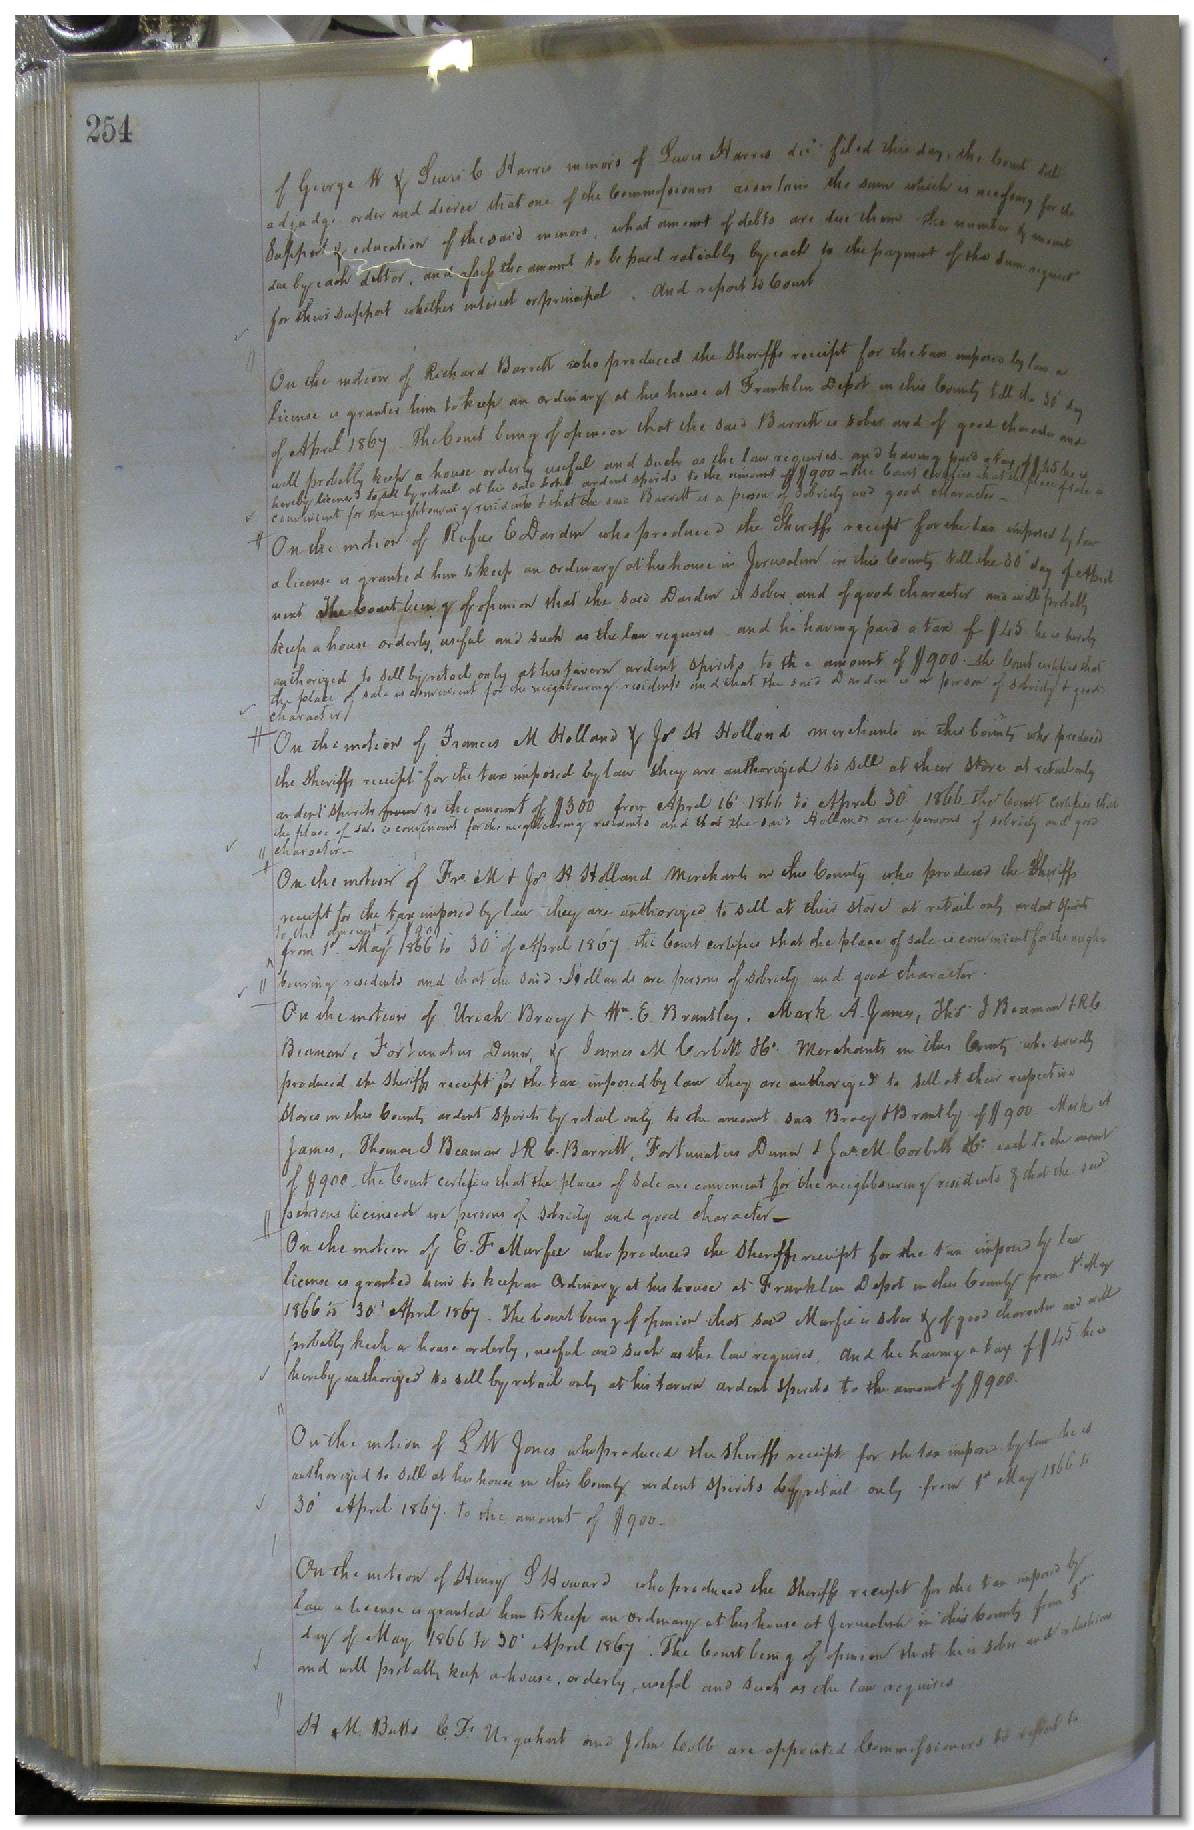 254
of George W & Lewis C Harris minors of Lewis Harris decd filed this day, the Court doth
adjudge order and decree that one of the Commissioners ascertain the sum which is necessary for the
Support & education of the said minors, what amount of debts are due them the number & amount
due by each debtor, and assess the amount to be paid ratiably by each to the payment of the sum
for their support whether interest or principal. And report to Court
On the motion of Richard Barrett who produced the Sheriffs receipt for the tax imposed by law a
license is granted him to keep an ordinary at his house at Franklin Depot in this County till the 30 day
of April 1867. The Court being of opinion that the said Barrett is sober and of good character and
will probably keep a house orderly useful and such as the law requires and having paid a tax of $45 he is
hereby licensed to sell by retail at his ardent spirits to the amount of $900 - the Court certifies that the place of sale is
convenient for the neighbouring residents & that the said Barrett is a person of sobriety and good character -
On the motion of Rufus E Darden who produced the Sheriffs receipt for the tax imposed by law
a license is granted him to keep an ordinary at his house in Jerusalem in this County till the 30 day of April
next The Court being of opinion that the said Darden is sober and of good character and will probably
keep a house orderly, useful and such as the law requires and he having paid a tax of $45 he is hereby
authorized to sell by retail only at his tavern ardent spirits to the amount of $900. the Court certifies that
the place of sale is convenient for the neighbouring residents and that the said Darden is a person of sobriety & good
character
On the motion of Francis M Holland & Js H Holland merchants in this County who produced
the Sheriffs receipt for the tax imposed by law they are authorized to sell at their store at retail only
ardent spirits from to the amount of $300 from April 16 1866 to April 30 1866 the Court certifies that
the place of sale is convenient for the neighboring residents and that the said Hollands are persons of sobriety and good
character -
On the motion of Frs M & Js H Holland Merchants in this County who produced the Sheriffs
receipt for the tax imposed by law they are authorized to sell at their store at retail only ardent spirits
to the amount of $900
from 1st May 1866 to 30 of April 1867 the Court certifies that the place of sale is convenient for the neigh-
bouring residents and that the said Hollands are persons of sobriety and good character.
On the motion of Uriah Bracy & Wm E. Brantley, Mark A. James, Thos J Beaman & R C
Beaman, Fortunatus Dunn, & James M Corbett Merchants in this County who severally
produced the Sheriffs receipt for the tax imposed by law they are authorized to sell at their respective
stores in this County ardent spirits by retail only to the amount said Bracy & Brantley of $900 Mark A
James, Thomas J Beaman & R C. Barrett, Fortunatus Dunn & Jas. M Corbett each to the amount
of $900 the Court certifies that the places of sale are convenient for the neighbouring residents & that the said
persons licensed are persons of sobriety and good character -
On the motion of E. F Murfee who produced the Sheriffs receipt for the tax imposed by law
license is granted him to keep an Ordinary at his house at Franklin Depot in this County from 1st May
1866 to 30' April 1867. The Court being of opinion that said Murfee is sober & of good character and will
probably keep a house orderly, useful and such as the law requires, and he having a tax of $45 he is
hereby authorized to sell by retail only at his tavern ardent spirits to the amount of $900.
On the motion of L W Jones who produced the Sheriffs receipt for the tax imposed by law he is
authorized to sell at his house in this County ardent spirits by retail only from 1st May 1866 to
30' April 1867. to the amount of $900 -
On the motion of Henry S Howard who produced the Sheriffs receipt for the tax imposed by
law a license is granted him to keep an ordinary at his house at Jerusalem in this County from 1st
day of May 1866 to 30' April 1867. The Court being of opinion that he is sober and
and will probably keep a house, orderly, useful and such as the law requires
H M. Butts C. F. Urquhart and John Cobb are appointed Commissioners to